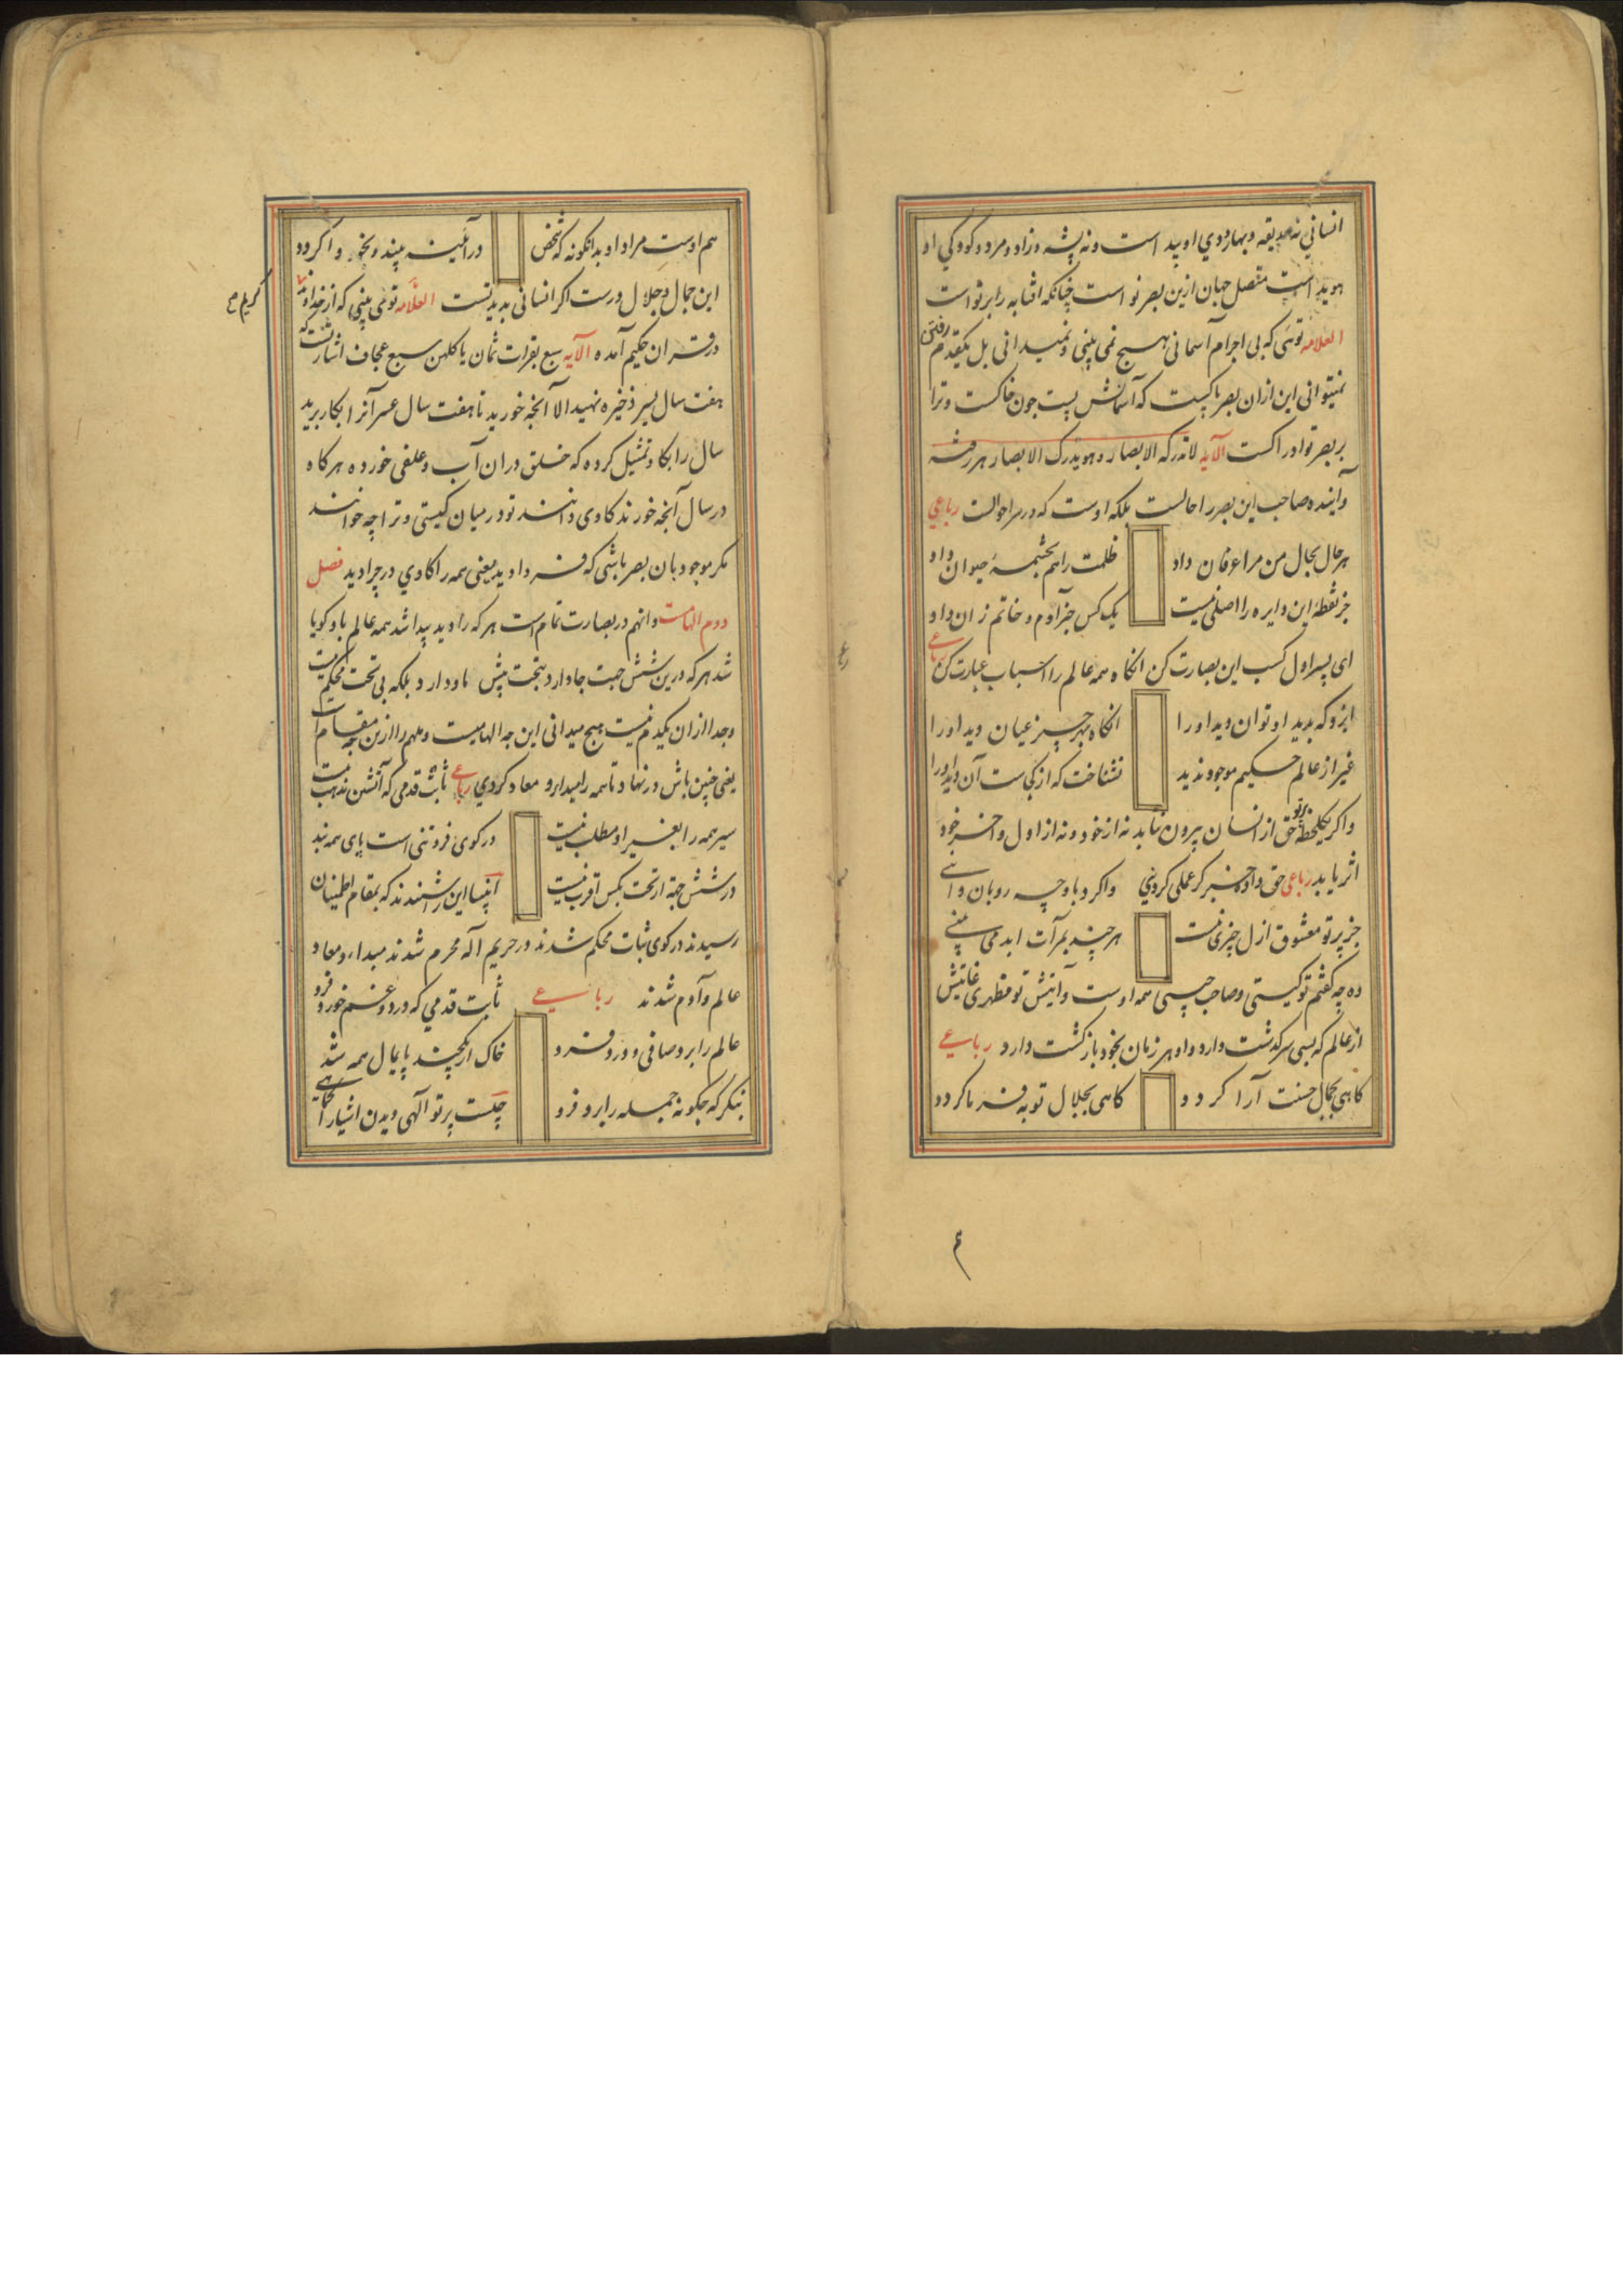 انسانی نه حدیقه و بهار روی او پید است و نه پشه و زاد و مرد و کودکی او
هویداست متصل جهان ازین بصر نو است چنانکه افتابه رابر تو است
العلامه توئی که بی اجرام آسمانی هیچ نمی بینی و نمیدانی بل یکقدم رفتن
نمیتوانی این ازان بصر پاکیست که آسمانش پست چون خاکست و ترا
بر بصر تو ادراکست الآیه لاتدرکه الابصار و هو یدرک الابصار هر رفته
و آینده صاحب این بصر را حالست بلکه اوست که در هر احوالست رباعی
هر حال بحال من مرا عرفان داد
ظلمت را هم بچشمهٔ حیوان داد
جز نقطهٔ این دایره را اصلی نیست
یک کس جز آدم و خاتم زان داد
ای پسر اول کسب این بصارت کن انگاه همه عالم را اسباب عبارت کن رباعی
ابرو که بدید او توان دید او را
انگاه بهر چیز عیان دید او را
غیر از عالم حکیم موجود ندید
نشناخت که از کجاست آن دید او را
و اگر یکلحظه پرتو حق از انسان بیرون نیاید نه از خود و نه از اول و آخر خود
اثر یابد رباعی حق داده خبر کر عملی کردنی
واکرد باوچه رو بان دانی
جز پرتو معشوق ازل چیزی نیست
هر چند بمرآت ابد می بینی
ده چه گفتم تو کیستی و صاحب چیستی همه اوست و آنیتش تو مظهری غایتش
از عالم که بسی سرگذشت دارد و او هر زمان بخود بازگشت دارد رباعی
گاهی بجمال حسنت آرا گردد
گاهی بجلال توبه فرما گردد
۴
هم اوست مراد او بدانگونه که شخص
در آئینه بیند و بخود واگردد
این جمال و جلال ورست اگر انسانی بدیدتست العلامه تو می بینی که از خداوند
کریم ح
در قران حکیم آمده الآیه سبع بقرات ثمان یاکلهن سبع عجاف اشارتست که
هفت سال یسر ذخیره نهید الا آنچه خورید تا هفت سال عسر آنرا بکار برید
سال را بگاو تمثیل کرده که خلق دران آب و علفی خورده هرگاه
در سال آنچه خورند گاوی دانند تو در میان کیستی و ترا چه خوانند
مگر موجود بان بصر باشی که فرد دادید یعنی همه را گاوی در چرا دید فصل
دوم الهامست و انهم در بصارت تمام است هر که را دید پیدا شد همه عالم باو گویا
شد هر که درین شش جهت جا دارد پنجت پیش ما و دارد بلکه بی تحت محکم نیست
و جدا ازان یکدم نیست هیچ میدانی این چه الهامیست و ملهم را ازین چه مقام است
یعنی چنین باش در نهاد تا همه را مبدا رو معاد گردی رباعی ثابت قدمی که آتشن مذهب نیست
سیر همه را بغیر او مطلب نیست
در کوی فروتنی است پای همه بند
در شش جهة از تحت بکس اقرب نیست
آنپسا این را شنیدند که بمقام اطمینان
رسیدند در کوی ثبات محکم شدند در حریم آله محرم شدند مبداء و معاد
عالم و آدم شدند رباعی
ثابت قدمی که درد و غم خورد فرو
عالم را برد صافی و درد فرو
خاک ارچند پایمال همه شد
بنگر که چگونه جمله را برد فرو
چیست پرتو آلهی دیدن اشیا را کماهی